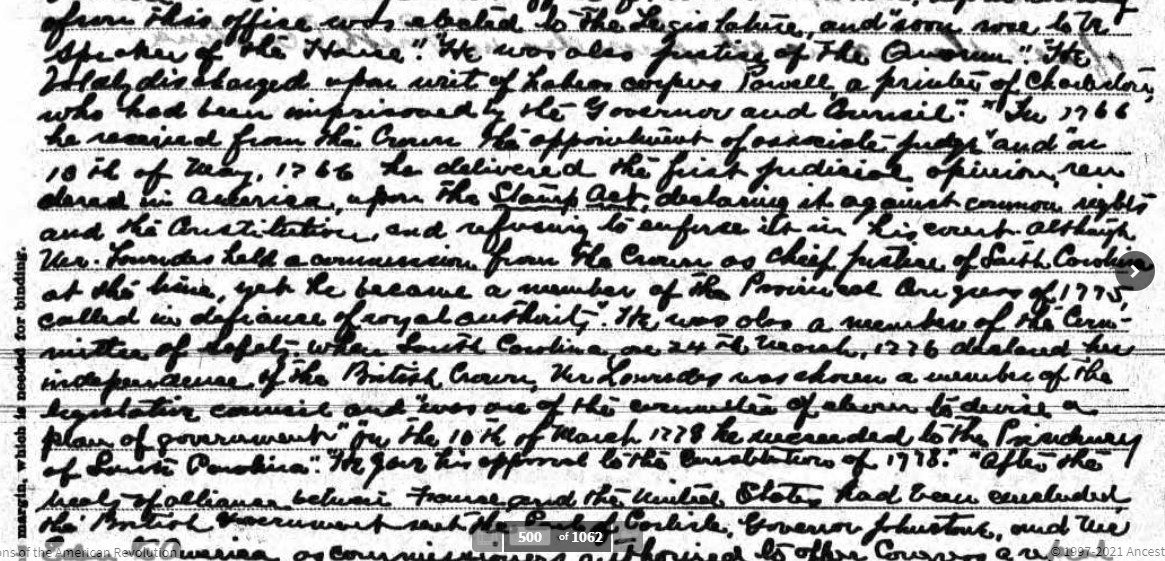 from this office was elected to the Legislature, and "soon rose to be
Speaker of the House". "He was also justice of the Quorum". "He
boldly discharged upon writ of habeas corpus Powell, a printer of Charleston,
who had been imprisoned by the Governor and Council". "In 1766
he received from the Crown the appointment of associate judge" and "on
10th of May, 1766 he delivered the first judicial opinion, ren
dered in America, upon the Stamp Act, declaring it against common rights
and the Constitution, and refusing to enforce it in his court although
Mr. Lowndes held a commission from the Crown as chief justice of South Carolina
at the time, yet he became a member of the Provincial Congress of 1775,
called in defiance of royal authority". He was also a member of the Com-
mittee of Safety when South Carolina, on 24th March, 1776 declared her
independence of the British Crown, Mr Lowndes was chosen a member of the
legislative council and "was one of the committee of eleven to devise a
plan of government" "On the 10th of March 1778 he succeeded to the Presidency
of South Carolina". "He gave his approval to the Constitution of 1778." "After the
treaty of alliance between France and the United States had been concluded
the British Government sent the Earl of Carlisle, Governor Johnstone, and
America, as to offer Congress a
margin, which is needed for binding.
500 of 1062
ons of the American Revolution
© 1997-2021 Ancest